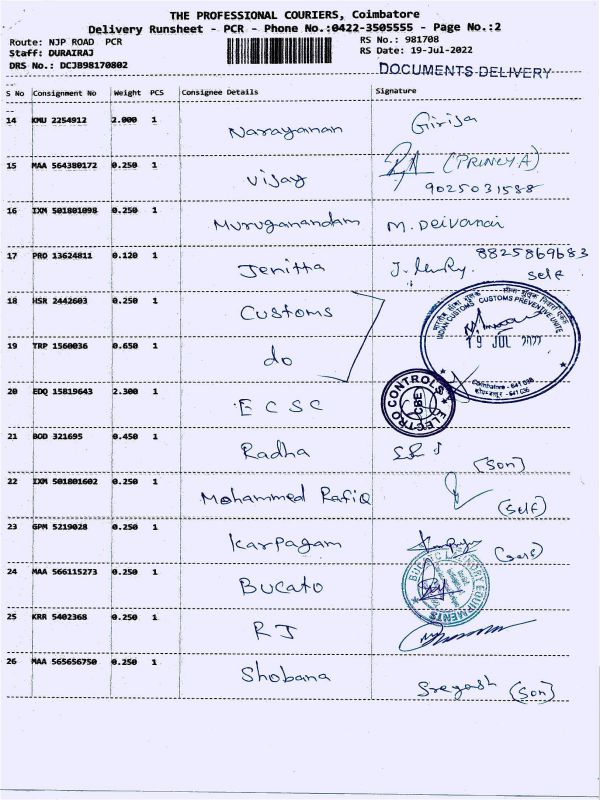 THE PROFESSIONAL COURIERS, Coimbatore
Delivery Runsheet - PCR - Phone No.:0422-3505555 - Page No.:2
Route: NJP ROAD PCR
RS No.: 981708
Staff: DURAIRAJ
RS Date: 19-Jul-2022
DRS No.: DCJB98170802
DOCUMENTS DELIVERY
S No Consignment No Weight PCS Consignee Details Signature
14 KMU 2254912 2.000 1 Narayanan Girija
15 MAA 564380172 0.250 1 Vijay (PRINCYA)
9025031588
16 IXM 501801098 0.250 1 Muruganandam M. Deivanai
17 PRO 13624811 0.120 1 Jenitta 8825869683
self
18 HSR 2442603 0.250 1 Customs
INDIAN CUSTOMS CUSTOMS PREVENTIVE UNIT
19 JUL 2022
19 TRP 1560036 0.650 1 do
Coimbatore - 641 018
20 EDQ 15819643 2.300 1 ECSC
ELECTRO CONTROLS
CBE
21 BOD 321695 0.450 1 Radha
(Son)
22 IXM 501801602 0.250 1 Mohammed Rafiq
(self)
23 GPM 5219028 0.250 1 Karpagam
24 MAA 566115273 0.250 1 Bucato
BUCATO LAUNDRY EQUIPMENTS
25 KRR 5402368 0.250 1 RJ
26 MAA 565656750 0.250 1 Shobana
(Son)